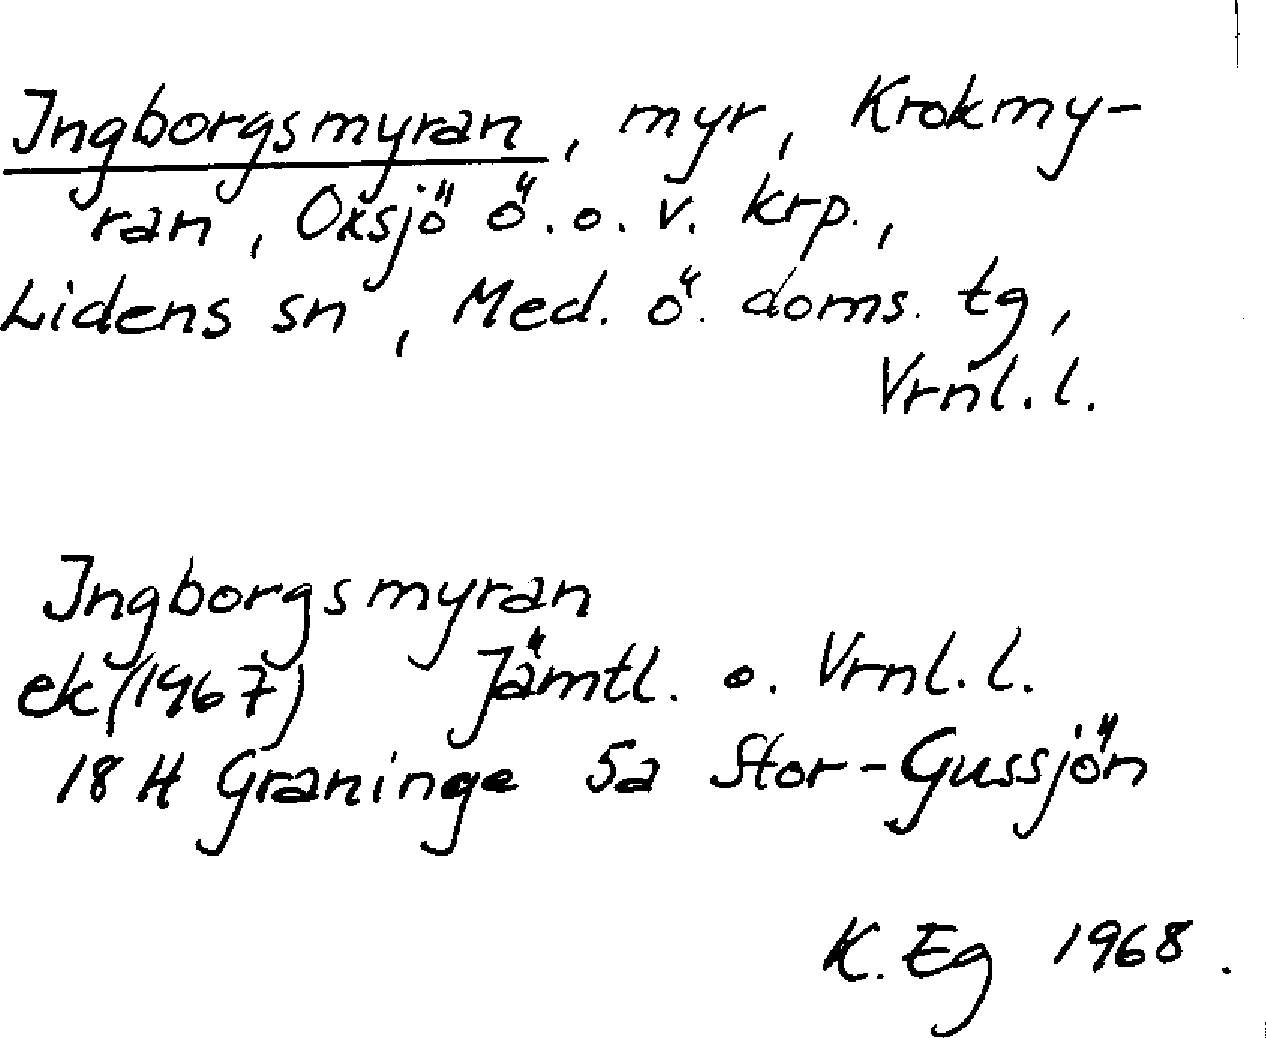 Ingborgsmyran, myr, Krokmy-
ran, Oxsjö ö. o. v. krp.,
Lidens sn, Med. ö. doms. tg,
Vrnl. l.
Ingborgsmyran
ek (1967) Jämtl. o. Vrnl. l.
18 H Graninge 5a Stor-Gussjön
K. Eg 1968.